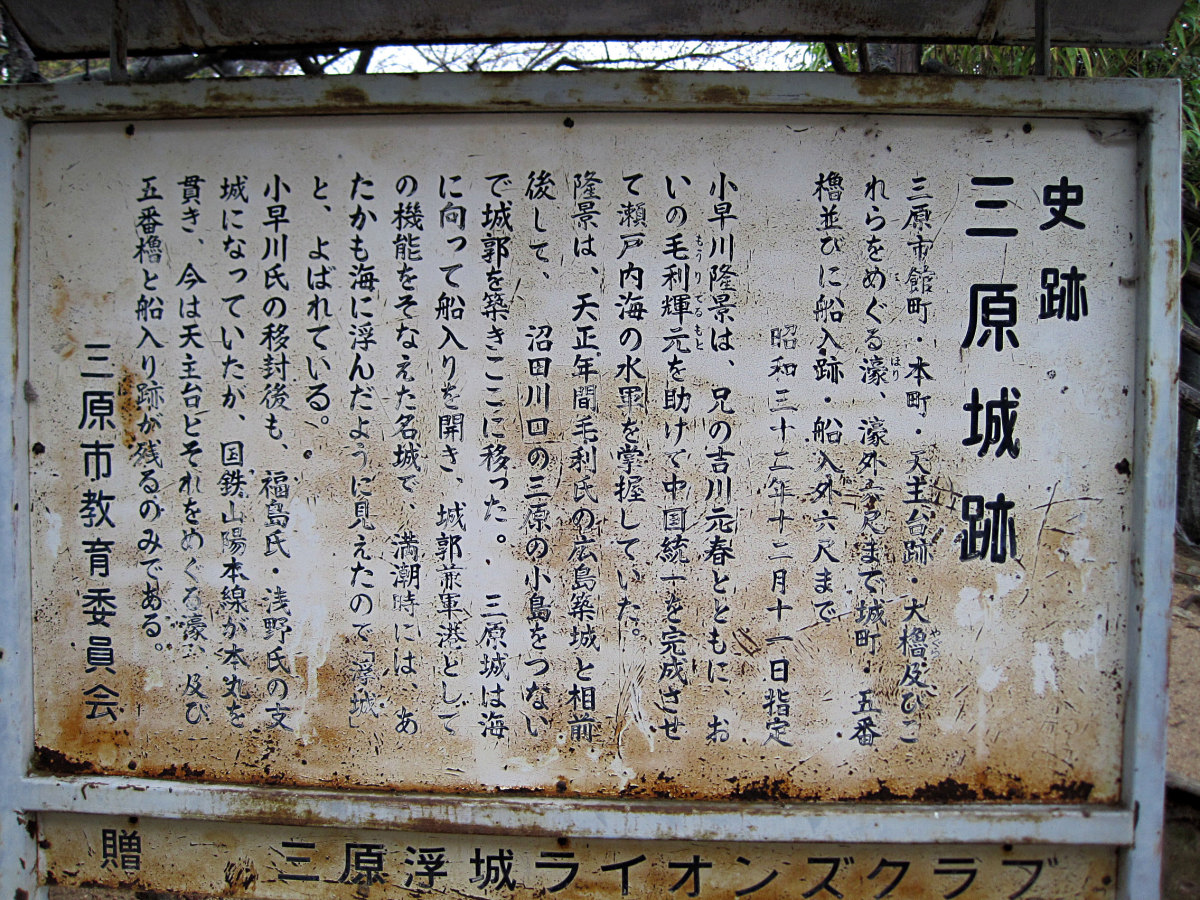 史跡
三原城跡
三原市館町・本町・天主台跡・大櫓及びこ
れらをめぐる濠、濠外六尺まで城町・五番
櫓並びに船入跡・船入外六尺まで
昭和三十二年十二月十一日指定
小早川隆景は、兄の吉川元春とともに、お
いの毛利輝元を助けて中国統一を完成させ
て瀬戸内海の水軍を掌握していた。
隆景は、天正年間毛利氏の広島築城と相前
後して、沼田川口の三原の小島をつない
で城郭を築きここに移った。三原城は海
に向って船入りを開き、城郭兼軍港として
の機能をそなえた名城で、満潮時には、あ
たかも海に浮んだように見えたので「浮城」
と、よばれている。
小早川氏の移封後も、福島氏・浅野氏の支
城になっていたが、国鉄山陽本線が本丸を
貫き、今は天主台とそれをめぐる濠、及び
五番櫓と船入り跡が残るのみである。
三原市教育委員会
贈 三原浮城ライオンズクラブ